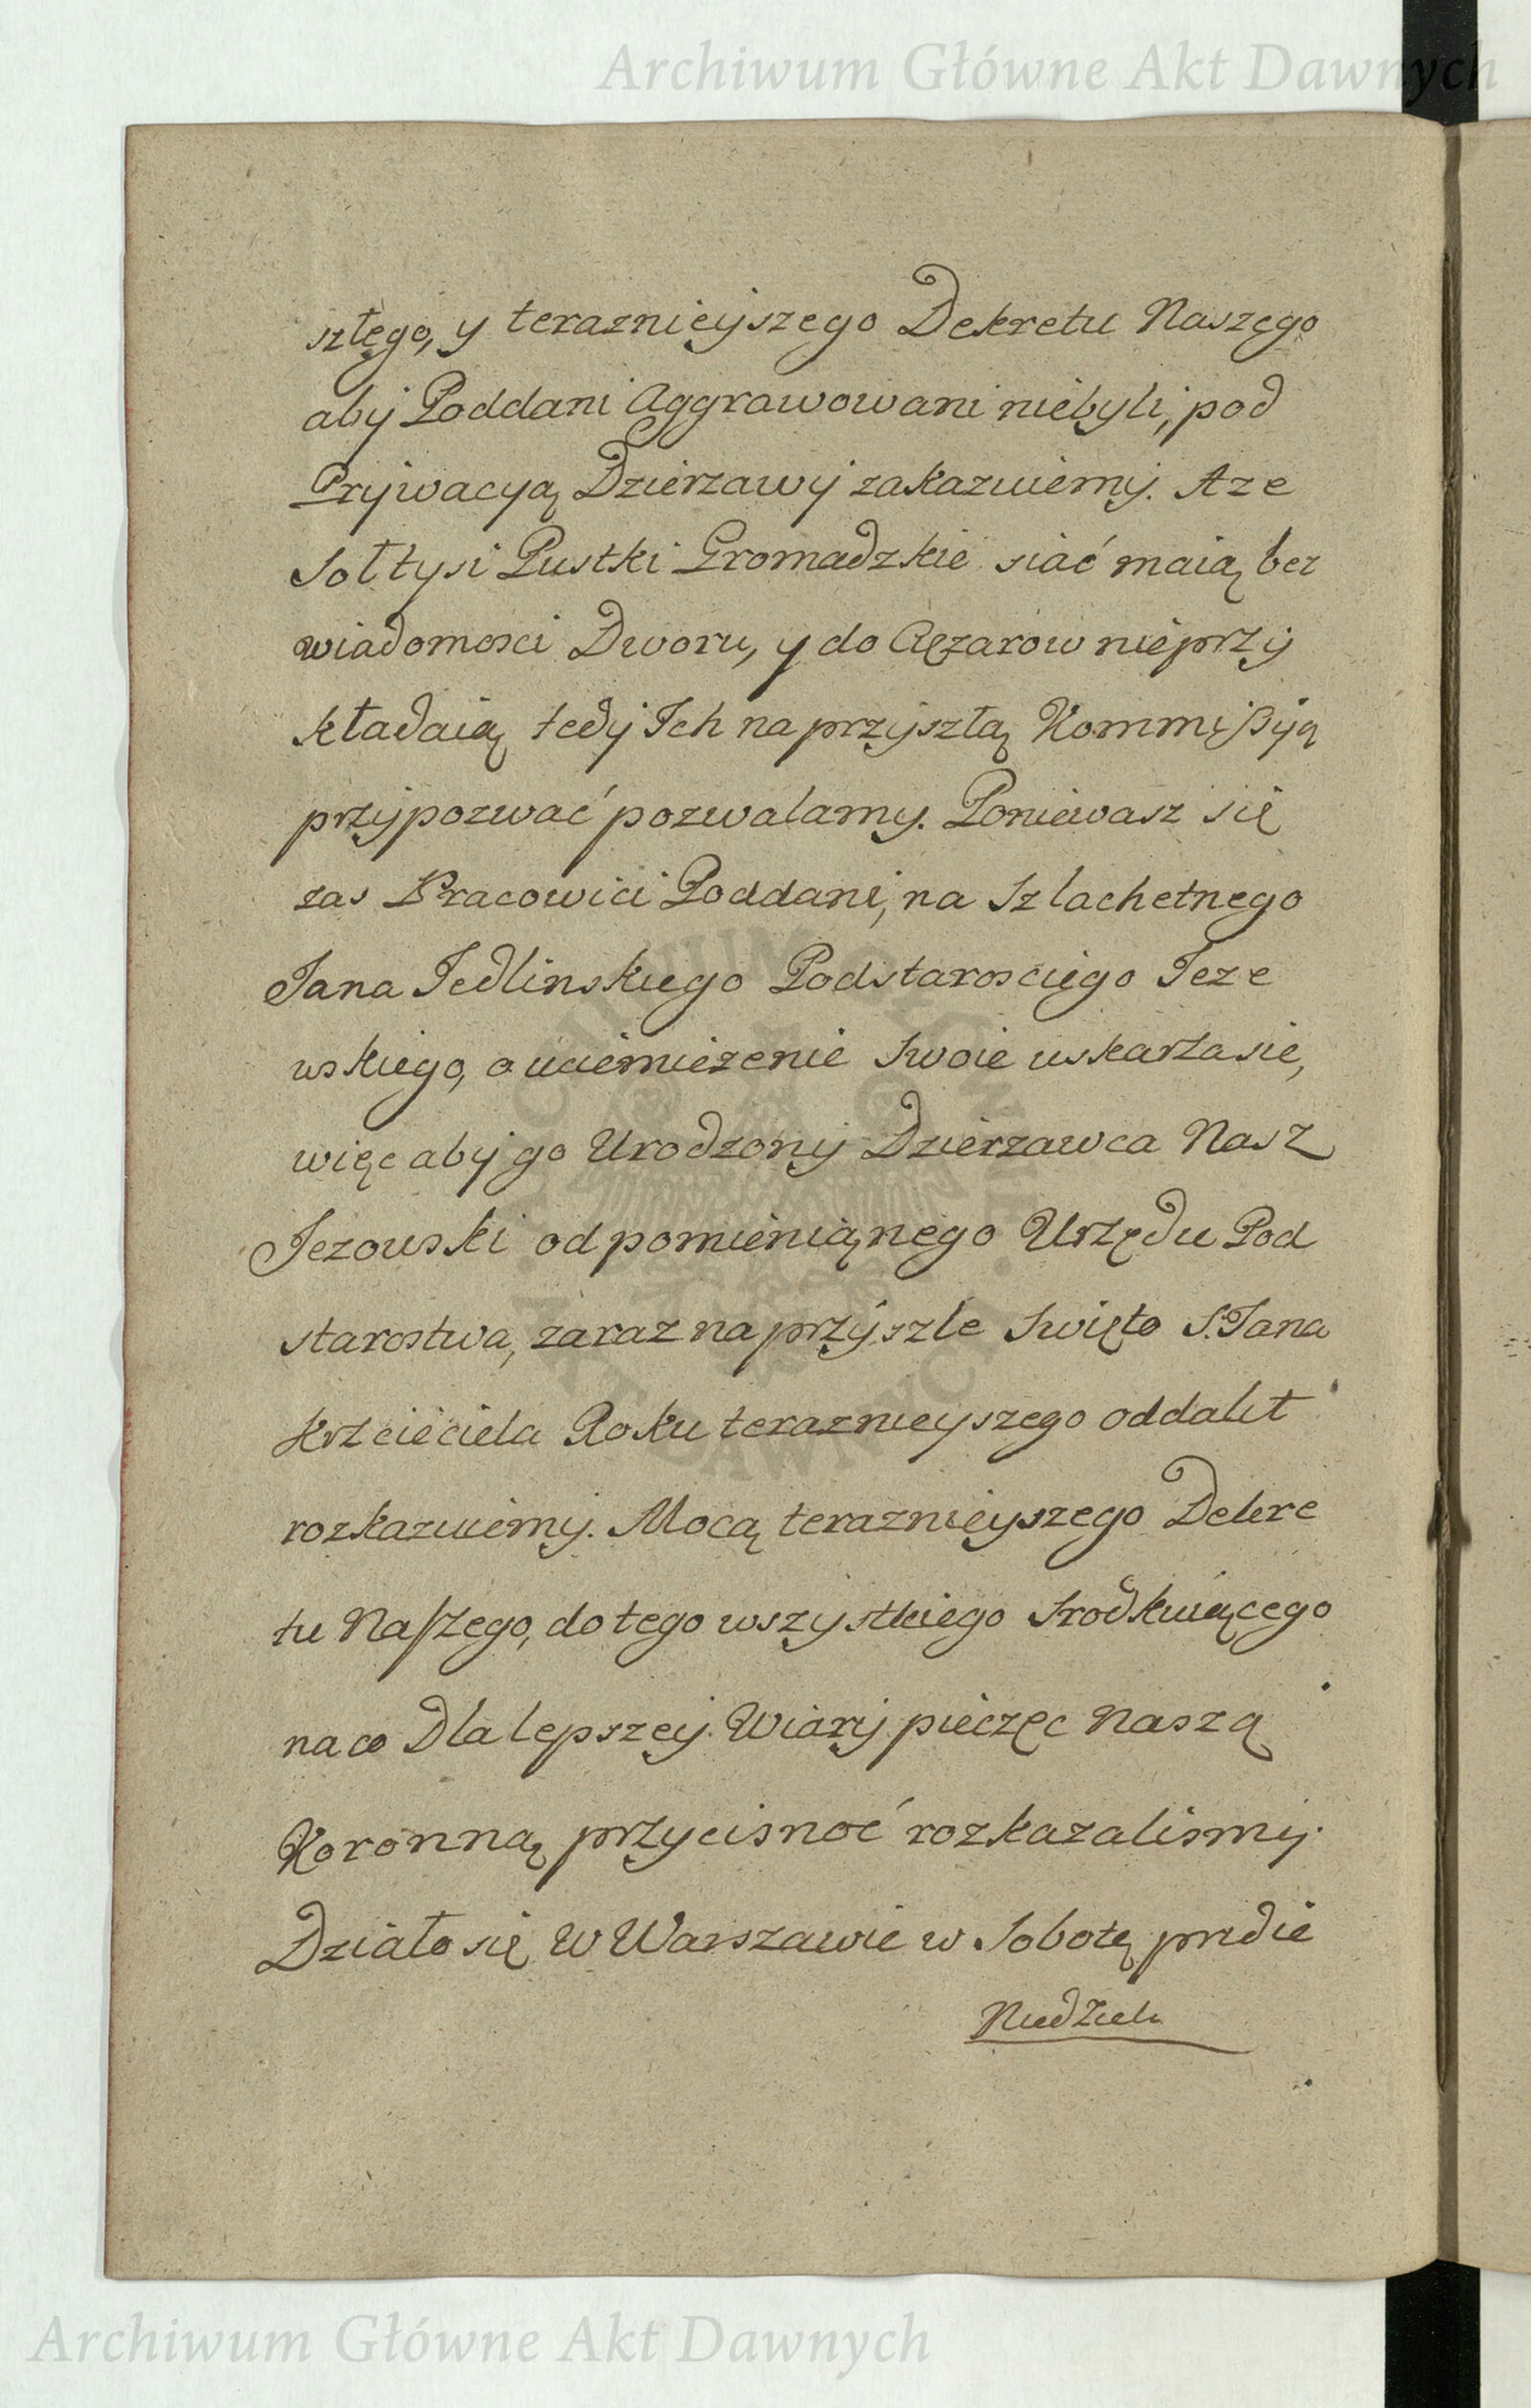 Archiwum Główne Akt Dawnych
szłego, y teraznieyszego Dekretu Naszego
aby Poddani Aggrawowani niebyli, pod
Prywacyą Dzierzawy zakazuiemy. Aze
Sołtysi Pustki Gromadzkie siać maią bez
wiadomosci Dworu, y do Cięzarow nieprzy
kładaią tedy Ich na przyszłą Kommissyą
przypozwać pozwalamy. Poniewasz się
zas Pracowici Poddani, na Szlachetnego
Jana Jedlinskiego Podstarosciego Jeze
wskiego, o uciemiezenie Swoie uskarza sie,
więc aby go Urodzony Dzierzawca Nasz
Jezowski od pomienią nego Urzędu Pod
starostwa, zaraz na przyszle Swięto S. Jana
Krzciciela Roku teraznieyszego oddalił
rozkazuiemy. Mocą teraznieyszego Dekre
tu Naszego, do tego wszystkiego Srodkuiącego
na co Dla lepszey Wiary pieczęc Naszą
Koronną przycisnoć rozkazalismy.
Działo się W Warszawie w Sobotę pridie
Niedzieli
Archiwum Główne Akt Dawnych